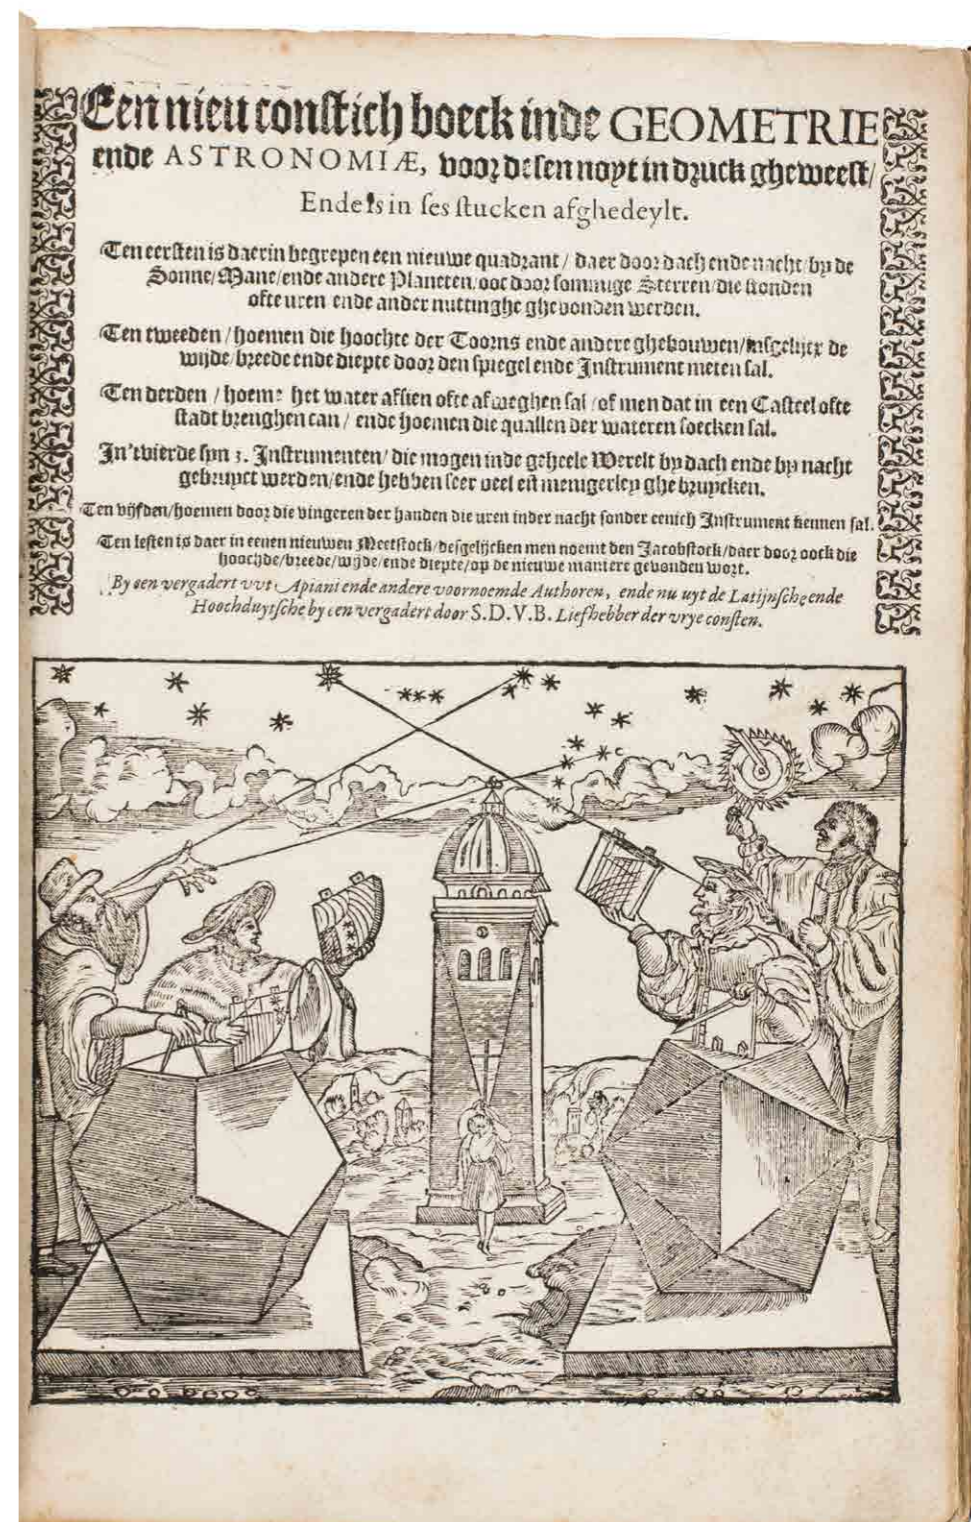 Een nieu constich boeck inde GEOMETRIE
ende ASTRONOMIÆ, voor desen noyt in druck gheweest/
Ende is in ses stucken afghedeylt.
Ten eersten is daerin begrepen een nieuwe quadrant / daer door dach ende nacht / by de
Sonne/Mane/ende andere Planeten/ooc door sommige Sterren/die stonden
ofte uren ende ander nuttinghe ghevonden werden.
Ten tweeden / hoemen die hoochte der Toorns ende andere ghebouwen/ de
wijde/breede ende diepte door den spiegel ende Instrument meten sal.
Ten derden / hoem? het water afsien ofte afweghen sal / of men dat in een Casteel ofte
stadt brenghen can / ende hoemen die quallen der wateren soecken sal.
In'tvierde syn 3. Instrumenten/ die mogen inde geheele Werelt by dach ende by nacht
gebruyct werden/ende hebben seer veel eñ menigerley ghebruycken.
Ten vijfden/hoemen door die vingeren der handen die uren inder nacht sonder eenich Instrument kennen sal.
Ten lesten is daer in eenen nieuwen Meetstock/desgelijcken men noemt den Jacobstock/daer door oock die
hoochde/breede/wijde/ende diepte/op de nieuwe maniere gevonden wort.
By een vergadert uyt Apiani ende andere voornoemde Authoren, ende nu uyt de Latijnsche ende
Hoochduytsche by een vergadert door S.D.V.B. Liefhebber der vrye consten.